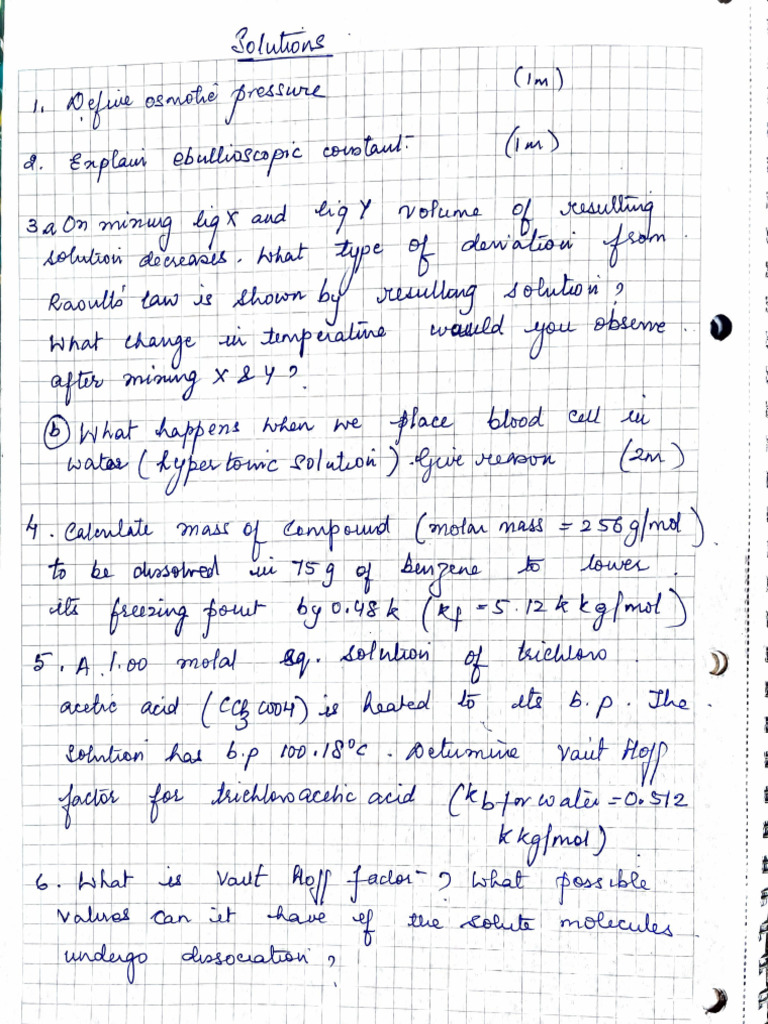 Solutions
1. Define osmotic pressure (1m)
2. Explain ebullioscopic constant. (1m)
3 a On mixing liq X and liq Y volume of resulting
solution decreases. What type of deviation from
Raoults' law is shown by resulting solution?
What change in temperature would you observe
after mixing X & Y?
(b) What happens when we place blood cell in
water (hypertonic solution). Give reason (2m)
4. Calculate mass of compound (molar mass = 256 g/mol)
to be dissolved in 75 g of benzene to lower
its freezing point by 0.48 k (kf = 5.12 k kg/mol)
5. A 1.00 molal aq. solution of trichloro
acetic acid (CCl3COOH) is heated to its b.p. The
solution has b.p 100.18°C. Determine vant Hoff
factor for trichloroacetic acid (kb for water = 0.512
k kg/mol)
6. What is vant Hoff factor? What possible
values can it have if the solute molecules
undergo dissociation?